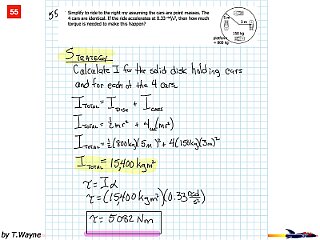 55
55
Simplify to ride to the right my assuming the cars are point masses. The
4 cars are identical. If the ride accelerates at 0.33 rad/s², then how much
torque is needed to make this happen?
5 m
3 m
150 kg
platform
= 800 kg
STRATEGY
Calculate I for the solid disk holding cars
and for each of the 4 cars
I TOTAL = I DISK + I CARS
I TOTAL = ½mr² + 4(mr²)
I TOTAL = ½(800kg)(5m)² + 4(150kg)(3m)²
I TOTAL = 15,400 kgm²
τ = Iα
τ = (15,400 kgm²)(0.33 rad/s²)
τ = 5082 Nm
by T.Wayne